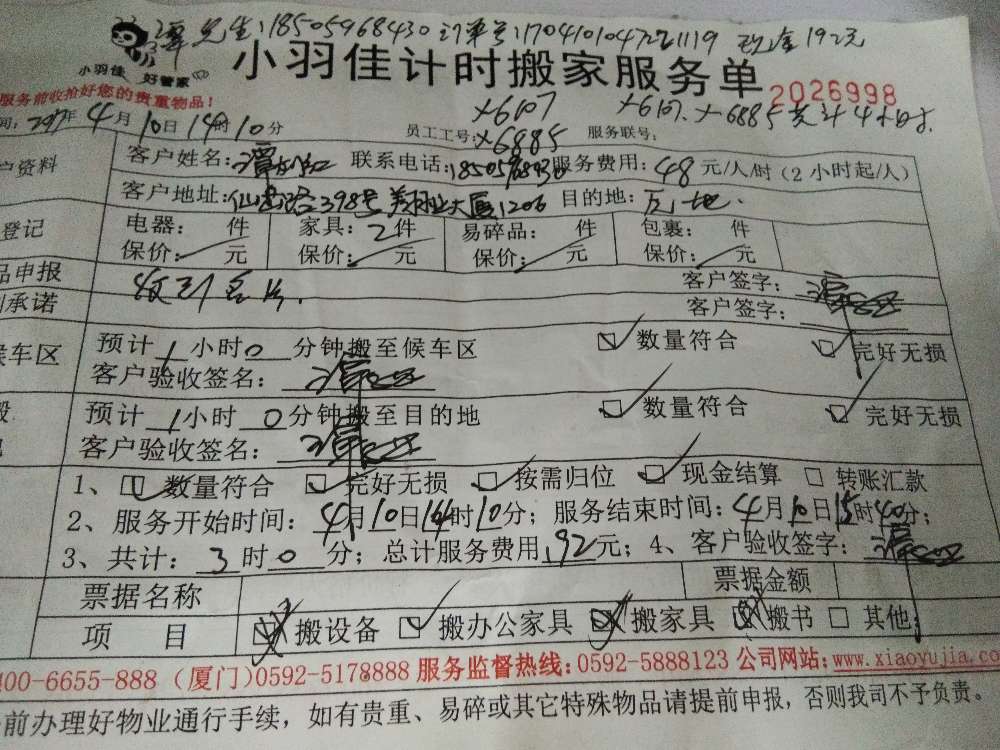 先生:18505968430 订单号:1704101047221119 现金192元
小羽佳 好管家
小羽佳计时搬家服务单
2026998
服务前收拾好您的贵重物品!
X6107 X6107. X6885 共计4小时.
间: 2017年4月10日14时10分 员工工号: X6885 服务联号:
户资料 客户姓名: 联系电话: 18505968430 服务费用: 48元/人/时(2小时起/人)
客户地址: 仙岳路398号翔业大厦1206 目的地:
登记 电器: 件 家具: 2件 易碎品: 件 包裹: 件
保价: 元 保价: 元 保价: 元 保价: 元
品申报 客户签字:
承诺 收到名片. 客户签字:
候车区 预计1小时0分钟搬至候车区 数量符合 完好无损
客户验收签名:
预计1小时0分钟搬至目的地 数量符合 完好无损
客户验收签名:
1、 数量符合 完好无损 按需归位 现金结算 转账汇款
2、服务开始时间: 4月10日14时10分; 服务结束时间: 4月10日15时40分;
3、共计: 3时0分; 总计服务费用192元; 4、客户验收签字:
票据名称 票据金额
项 目 搬设备 搬办公家具 搬家具 搬书 其他:
400-6655-888 (厦门)0592-5178888 服务监督热线:0592-5888123 公司网站:www.xiaoyujia.com
前办理好物业通行手续,如有贵重、易碎或其它特殊物品请提前申报,否则我司不予负责。